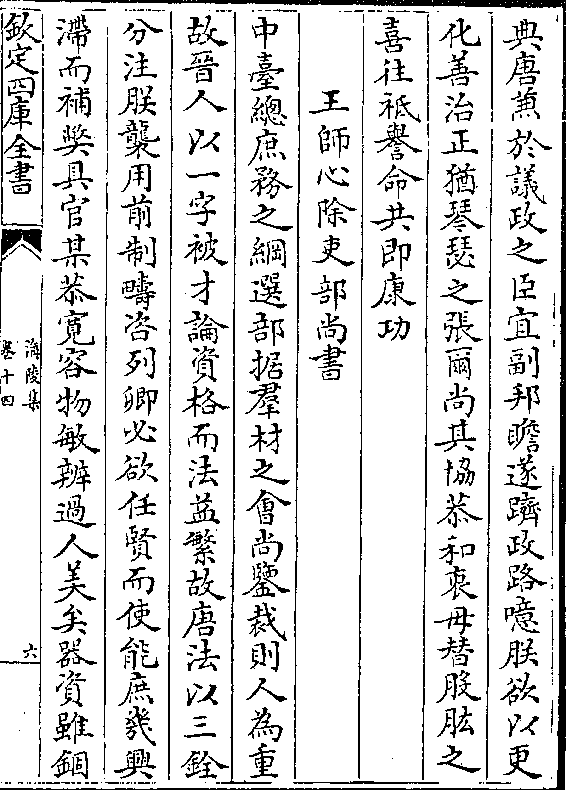 典唐薫於議政之臣宜副邦瞻遂躋政路噫朕欲以更
化善治正猶琴瑟之張爾尚其協恭和衷毋替股肱之
喜往祗譽命共即康功
王師心除吏部尚書
中臺總庶務之綱選部据羣材之會尚鑒裁則人為重
故晉人以一字被才論資格而法益繁故唐法以三銓
分注朕襲用前制疇咨列卿必欲任賢而使能庶幾興
滯而補獘具官某恭寛容物敏辨過人美矣器資雖錮
欽定四庫全書
海陵集
卷十四
六